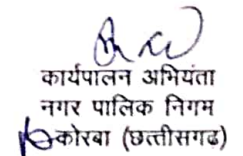 कार्यपालन अभियंता
नगर पालिक निगम
कोरबा (छत्तीसगढ)